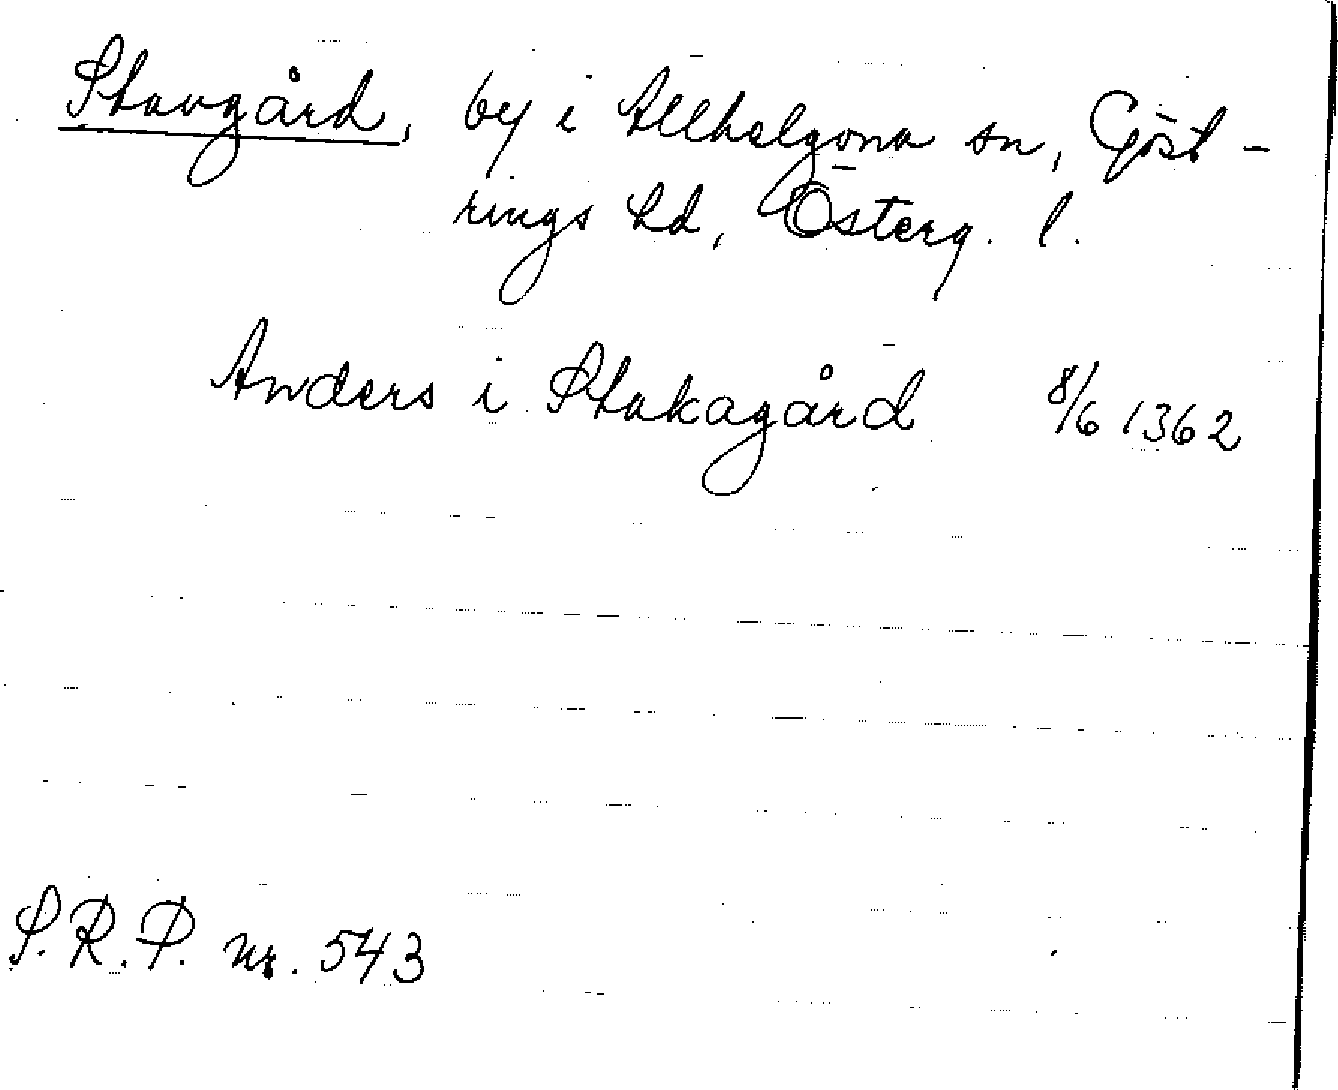 Stavgård, by i Allhelgona sn, Göst-
rings hd, Österg. l.
Anders i Stakagård 8/6 1362
S.R.P. nr. 543